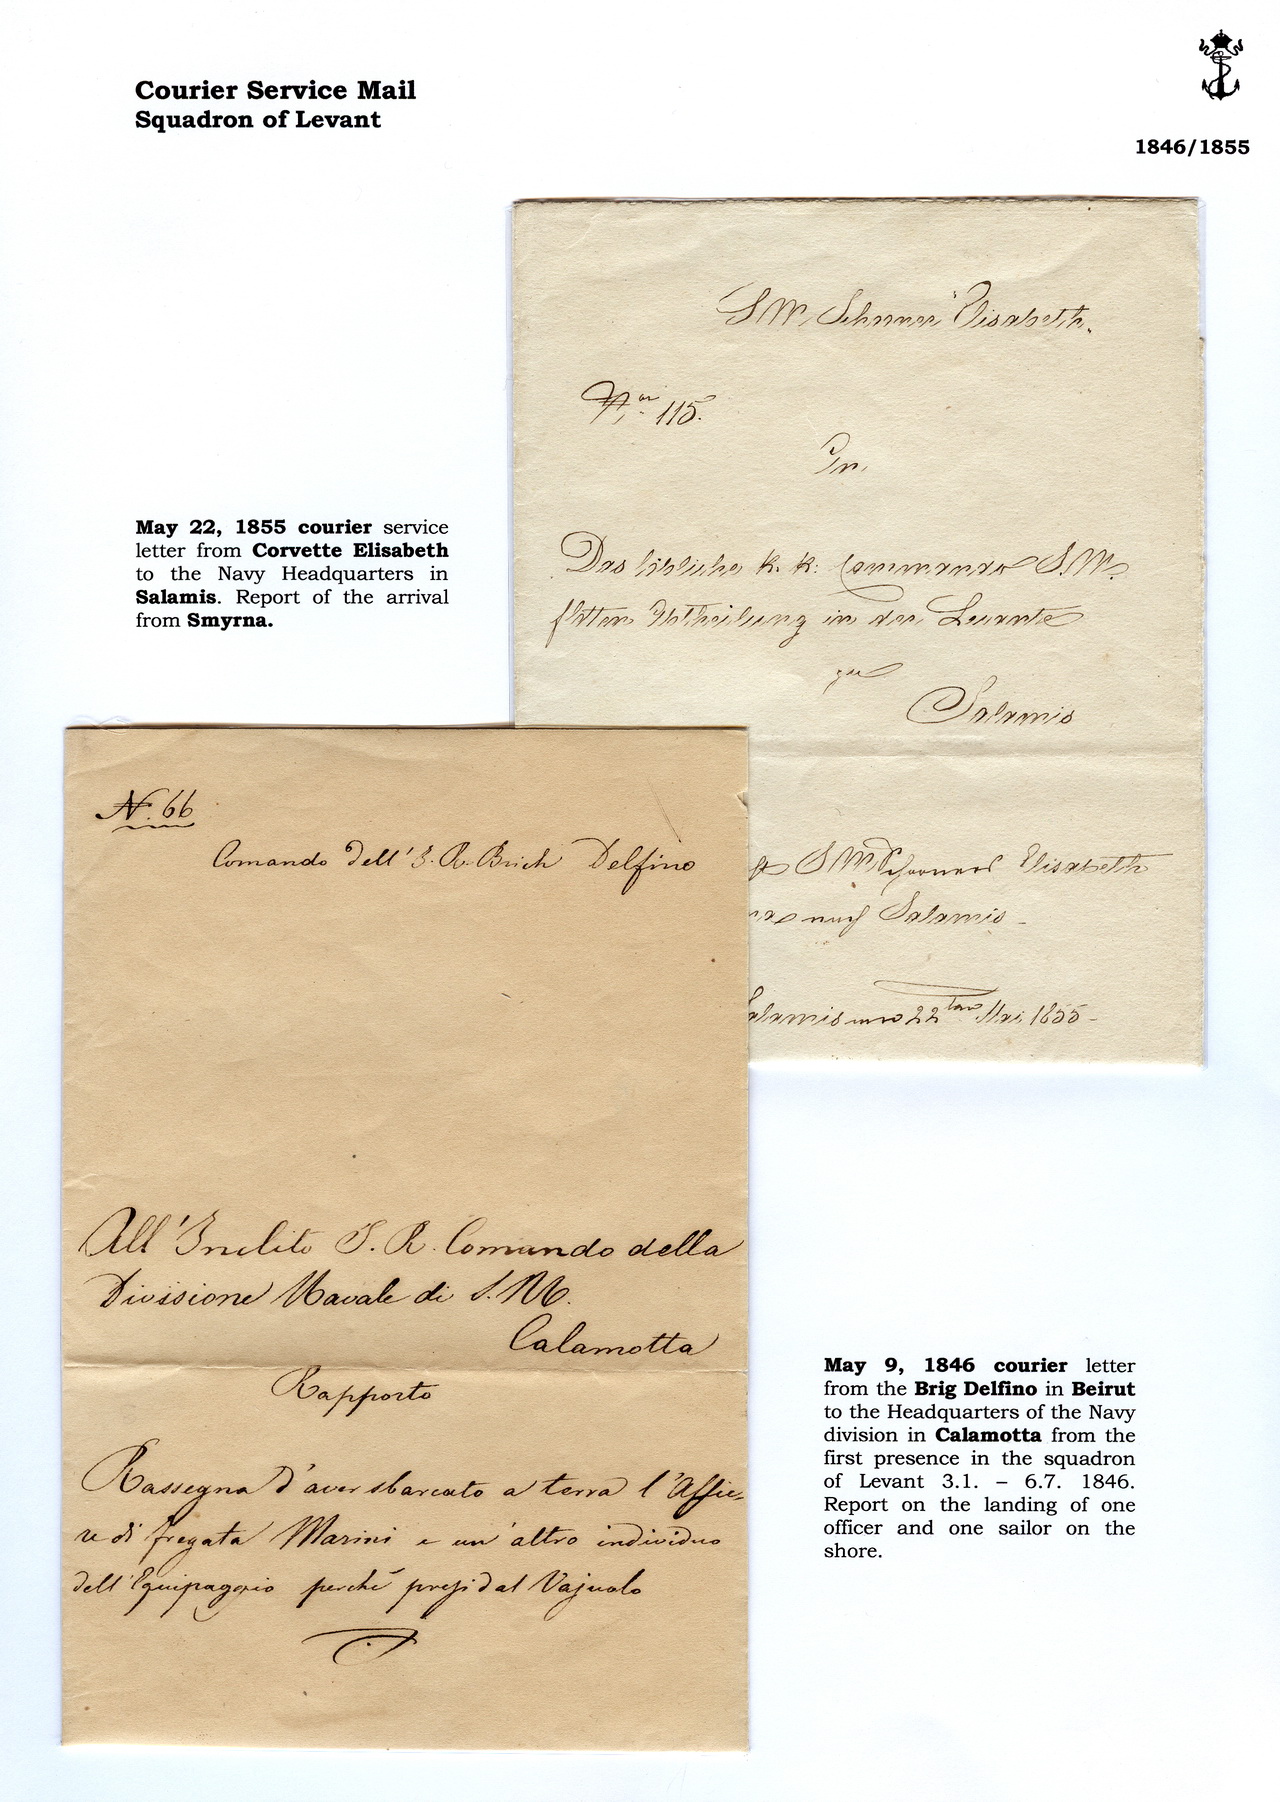 Courier Service Mail
Squadron of Levant
1846/1855
S. M. Schooner "Elisabeth.
Nro 115.
An
Das löbliche k. k. Commando S. M.
flotten Abtheilung in der Levante
zu
Salamis
May 22, 1855 courier service
letter from Corvette Elisabeth
to the Navy Headquarters in
Salamis. Report of the arrival
from Smyrna.
S M Schooners Elisabeth
nach Salamis -
Salamis am 22ten Mai 1855 -
N. 66
Comando dell' I. R. Brich Delfino
All' Inclito I. R. Comando della
Divisione Navale di S. M.
Calamotta
Rapporto
Rassegna d'aver sbarcato a terra l'Alfie-
re di fregata Marini e un altro individuo
dell'Equipaggio perché presi dal Vajuolo
May 9, 1846 courier letter
from the Brig Delfino in Beirut
to the Headquarters of the Navy
division in Calamotta from the
first presence in the squadron
of Levant 3.1. – 6.7. 1846.
Report on the landing of one
officer and one sailor on the
shore.